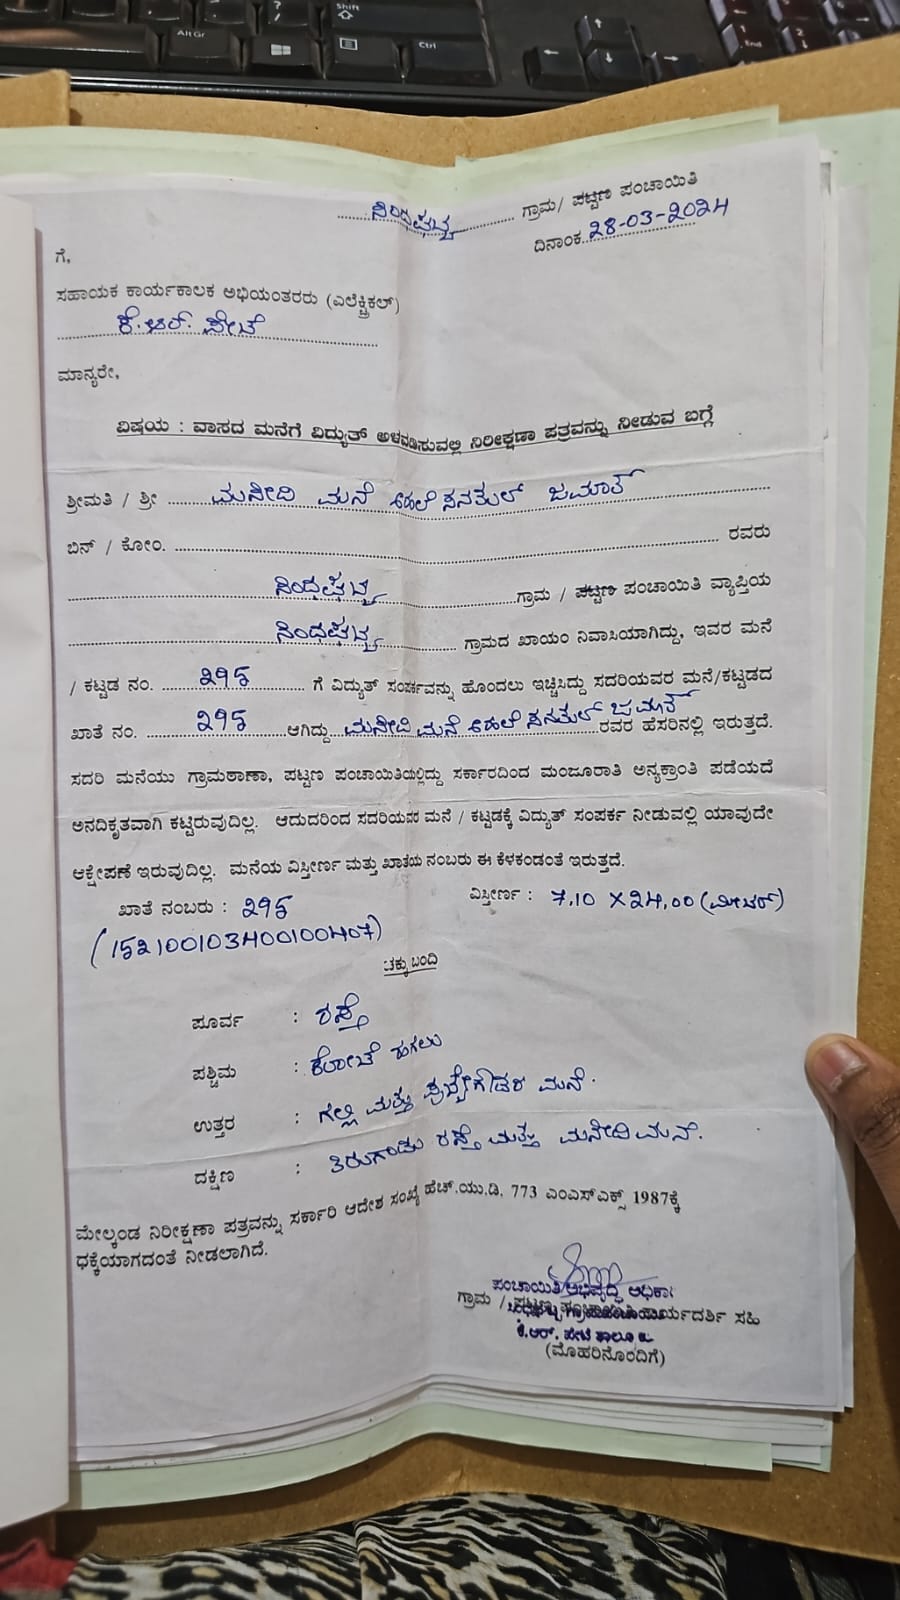 ಸಿಂಧಘಟ್ಟ ಗ್ರಾಮ/ ಪಟ್ಟಣ ಪಂಚಾಯಿತಿ
ದಿನಾಂಕ 28-03-2024
ಗೆ,
ಸಹಾಯಕ ಕಾರ್ಯಕಾಲಕ ಅಭಿಯಂತರರು (ಎಲೆಕ್ಟ್ರಿಕಲ್)
ಕೆ.ಆರ್. ಪೇಟೆ
ಮಾನ್ಯರೇ,
ವಿಷಯ : ವಾಸದ ಮನೆಗೆ ವಿದ್ಯುತ್ ಅಳವಡಿಸುವಲ್ಲಿ ನಿರೀಕ್ಷಣಾ ಪತ್ರವನ್ನು ನೀಡುವ ಬಗ್ಗೆ
ಶ್ರೀಮತಿ / ಶ್ರೀ ಮಸೀದಿ ಮನೆ ಅಹಲೆ ಸನತುಲ್ ಜಮಾತ್
ಬಿನ್ / ಕೋಂ. ರವರು
ಸಿಂಧಘಟ್ಟ ಗ್ರಾಮ / ಪಟ್ಟಣ ಪಂಚಾಯಿತಿ ವ್ಯಾಪ್ತಿಯ
ಸಿಂಧಘಟ್ಟ ಗ್ರಾಮದ ಖಾಯಂ ನಿವಾಸಿಯಾಗಿದ್ದು, ಇವರ ಮನೆ
/ ಕಟ್ಟಡ ನಂ. 295 ಗೆ ವಿದ್ಯುತ್ ಸಂಪರ್ಕವನ್ನು ಹೊಂದಲು ಇಚ್ಚಿಸಿದ್ದು ಸದರಿಯವರ ಮನೆ/ಕಟ್ಟಡದ
ಖಾತೆ ನಂ. 295 ಆಗಿದ್ದು ಮಸೀದಿ ಮನೆ ಅಹಲೆ ಸನತುಲ್ ಜಮಾತ್ ರವರ ಹೆಸರಿನಲ್ಲಿ ಇರುತ್ತದೆ.
ಸದರಿ ಮನೆಯು ಗ್ರಾಮಠಾಣಾ, ಪಟ್ಟಣ ಪಂಚಾಯಿತಿಯಲ್ಲಿದ್ದು ಸರ್ಕಾರದಿಂದ ಮಂಜೂರಾತಿ ಅನ್ಯಕ್ರಾಂತಿ ಪಡೆಯದೆ
ಅನದಿಕೃತವಾಗಿ ಕಟ್ಟಿರುವುದಿಲ್ಲ. ಆದುದರಿಂದ ಸದರಿಯವರ ಮನೆ / ಕಟ್ಟಡಕ್ಕೆ ವಿದ್ಯುತ್ ಸಂಪರ್ಕ ನೀಡುವಲ್ಲಿ ಯಾವುದೇ
ಆಕ್ಷೇಪಣೆ ಇರುವುದಿಲ್ಲ. ಮನೆಯ ವಿಸ್ತೀರ್ಣ ಮತ್ತು ಖಾತೆಯ ನಂಬರು ಈ ಕೆಳಕಂಡಂತೆ ಇರುತ್ತದೆ.
ಖಾತೆ ನಂಬರು : 295 ವಿಸ್ತೀರ್ಣ : 7.10 X 24.00 (ಮೀಟರ್)
(152100103400100407)
ಚಕ್ಕುಬಂದಿ
ಪೂರ್ವ : ರಸ್ತೆ
ಪಶ್ಚಿಮ : ಕೋಟೆ
ಉತ್ತರ : ಗಲ್ಲಿ ಮತ್ತು ಪುಟ್ಟೇಗೌಡರ ಮನೆ.
ದಕ್ಷಿಣ : ತಿರುಗಾಡು ರಸ್ತೆ ಮತ್ತು ಮಸೀದಿ ಮನೆ.
ಮೇಲ್ಕಂಡ ನಿರೀಕ್ಷಣಾ ಪತ್ರವನ್ನು ಸರ್ಕಾರಿ ಆದೇಶ ಸಂಖ್ಯೆ ಹೆಚ್.ಯು.ಡಿ. 773 ಎಂಎಸ್ಎಕ್ಸ್ 1987ಕ್ಕೆ
ಧಕ್ಕೆಯಾಗದಂತೆ ನೀಡಲಾಗಿದೆ.
ಪಂಚಾಯಿತಿ ಅಭಿವೃದ್ಧಿ ಅಧಿಕಾರಿ
ಗ್ರಾಮ / ಪಟ್ಟಣ ಪಂಚಾಯಿತಿ ಕಾರ್ಯದರ್ಶಿ ಸಹಿ
ಕೆ.ಆರ್. ಪೇಟೆ ತಾಲೂಕು
(ಮೊಹರಿನೊಂದಿಗೆ)